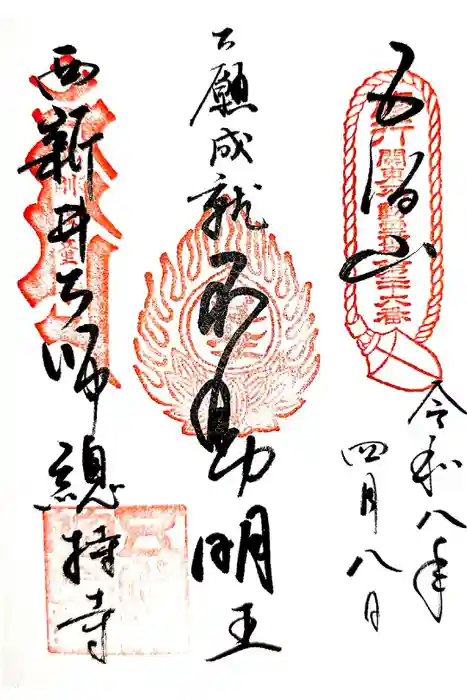 五智山
令和八年
四月八日
大願成就
不動明王
西新井大師
總持寺